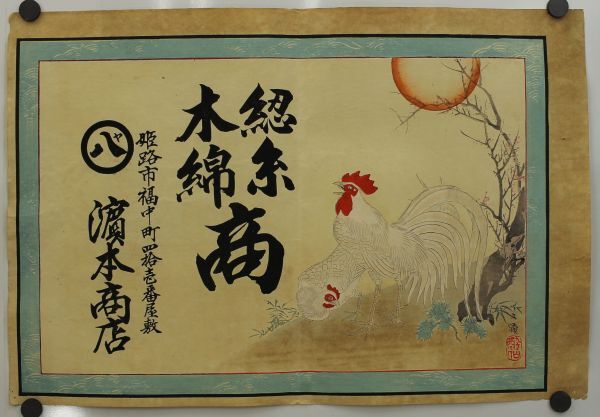 綛糸
木綿
商
姫路市福中町四拾壱番屋敷
八
濵本商店